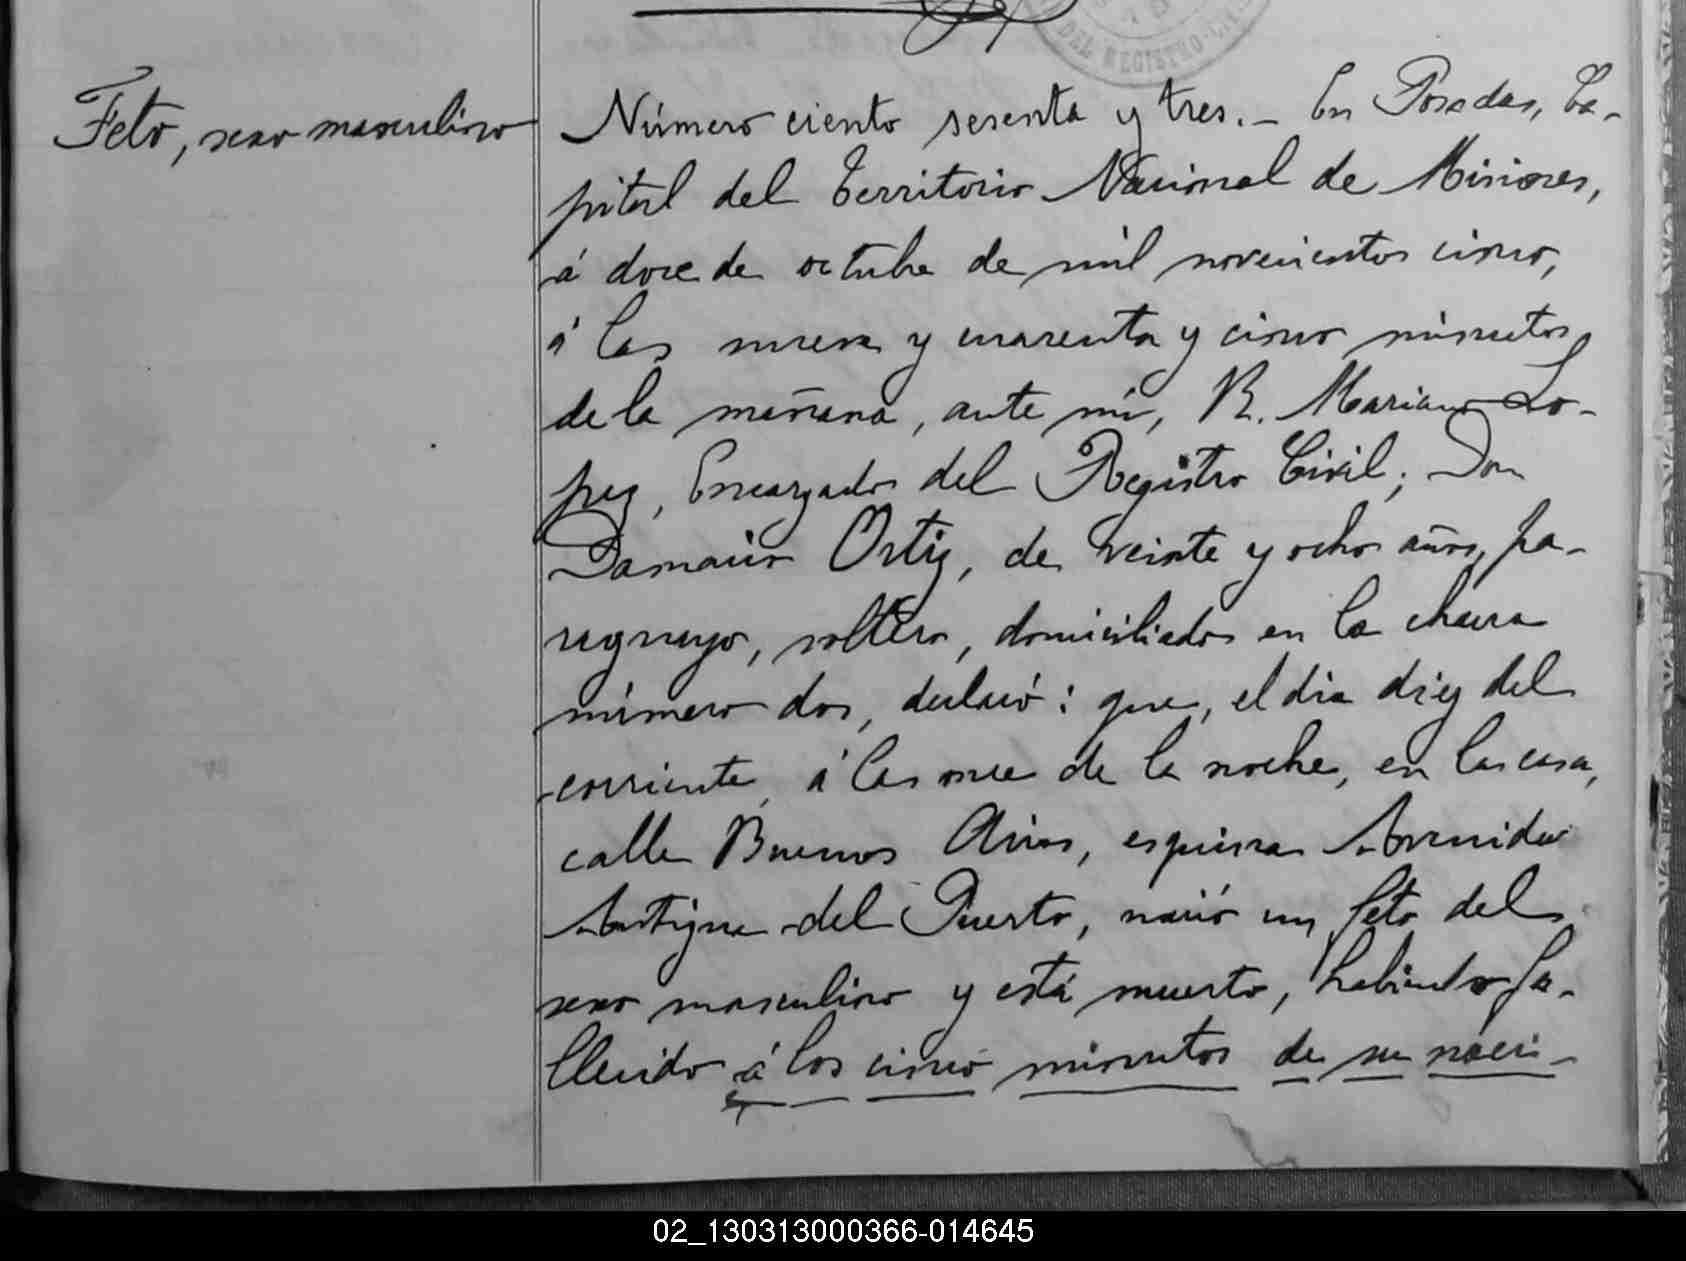 DEL REGISTRO CIVIL
Feto, sexo masculino
Número ciento sesenta y tres.- En Posadas, Ca-
pital del Territorio Nacional de Misiones,
á doce de octubre de mil novecientos cinco,
á las nueve y cuarenta y cinco minutos
de la mañana, ante mí, R. Mariano Lo-
pez, Encargado del Registro Civil; Don
Damacio Ortiz, de veinte y ocho años, pa-
raguayo, soltero, domiciliado en la chacra
número dos, declaró: que, el dia diez del
corriente, á las once de la noche, en la casa,
calle Buenos Aires, esquina Avenida
Antigua del Puerto, nació un feto del
sexo masculino y está muerto, habiendo fa-
llecido á los cinco minutos de su naci-
02_130313000366-014645